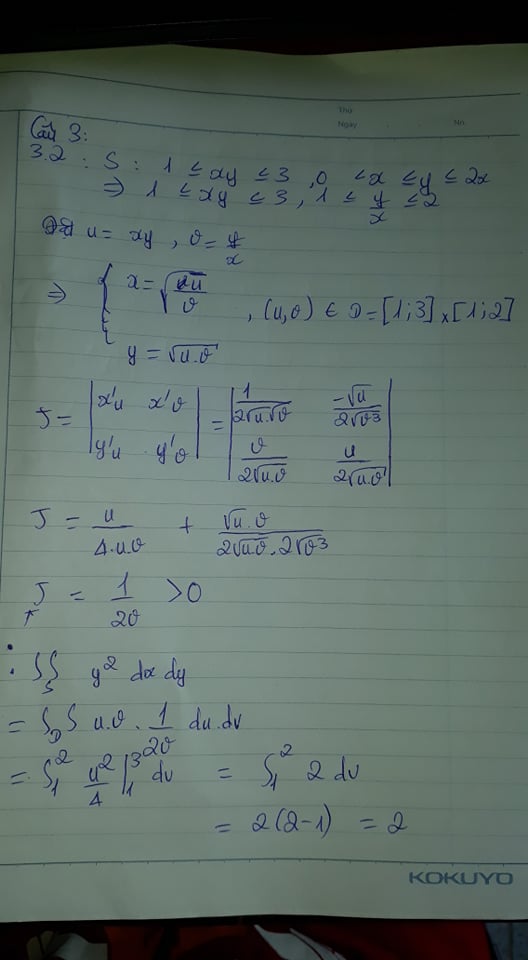 Thứ
Ngày
No.
Câu 3:
3.2 : S : 1 ≤ xy ≤ 3 , 0 < x ≤ y ≤ 2x
⇒ 1 ≤ xy ≤ 3 , 1 ≤ y/x ≤ 2
u = xy , v = y/x
⇒ { x = √(u/v)
, (u,v) ∈ D = [1;3] x [1;2]
y = √u.v
J = | x'u x'v ; y'u y'v | = | 1/(2√u.√v) -√u/(2√v³) ; v/(2√u.v) u/(2√u.v) |
J = u/(4.uv) + √u.v/(2√uv.2√v³)
J = 1/2v > 0
∫∫S y² dx dy
= ∫D∫ u.v . 1/2v du.dv
= ∫₁² u²/4 |₁³ dv = ∫₁² 2 dv
= 2(2-1) = 2
KOKUYO